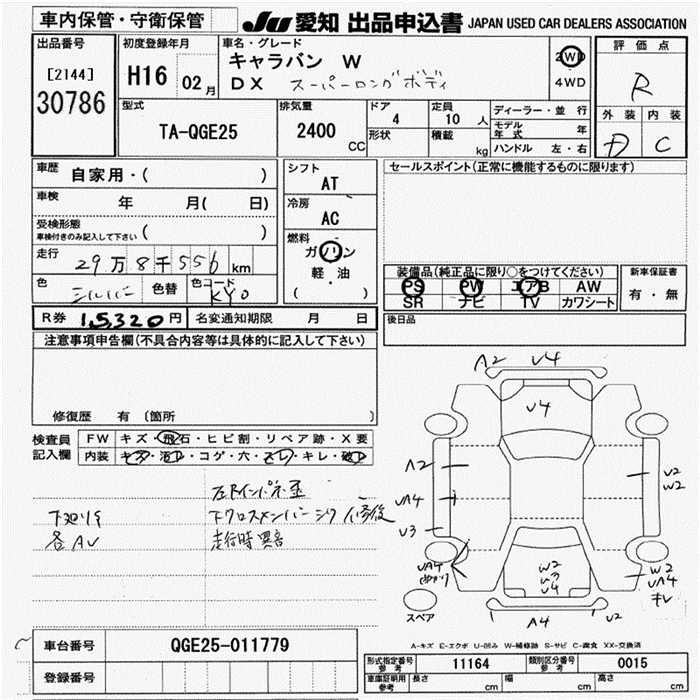 車内保管・守衛保管 JU 愛知 出品申込書 JAPAN USED CAR DEALERS ASSOCIATION
出品番号
[2144]
30786
初度登録年月
H16 02月
車名・グレード
キャラバン W
DX スーパーロングボディ
2WD
4WD
評価点
R
外装 内装
D C
型式
TA-QGE25
排気量
2400
CC
ドア
4
形状
定員
10 人
積載 kg
ディーラー・並行
モデル年式 年
ハンドル 左・右
車歴 自家用・( )
車検 年 月( 日)
受検形態
車検付きのみ記入して下さい ( )
走行 29万8千556 km
色 シルバー 色替 色コード KY0
シフト
AT
冷房
AC
燃料
ガソリン
軽・油
( )
セールスポイント(正常に機能するものに限ります)
装備品(純正品に限り○をつけてください)
PS PW エアB AW
SR ナビ TV カワシート
新車保証書
有・無
後日品
R券 15,320円 名変通知期限 月 日
注意事項申告欄(不具合内容等は具体的に記入して下さい)
修復歴 有 〔箇所 〕
検査員記入欄
FW キズ・飛石・ヒビ割・リペア跡・X要
内装 キズ・汚れ・コゲ・穴・スレ・キレ・破レ
左Rインパネ歪
下廻りサ 下クロスメンバーシワ修後
各AU 走行時異音
A2 U4
U4
A2
UA4
U3
UA4
U2
W2
W2
U2
U4
W2
UA4
キレ
スペア
A4 U2
A-キズ E-エクボ U-凹み W-補修跡 S-サビ C-腐食 XX-交換済
車台番号 QGE25-011779
登録番号
形式指定番号 参考 11164 類別区分番号 参考 0015
車庫証明用 参考 長さ cm 幅 cm 高さ cm